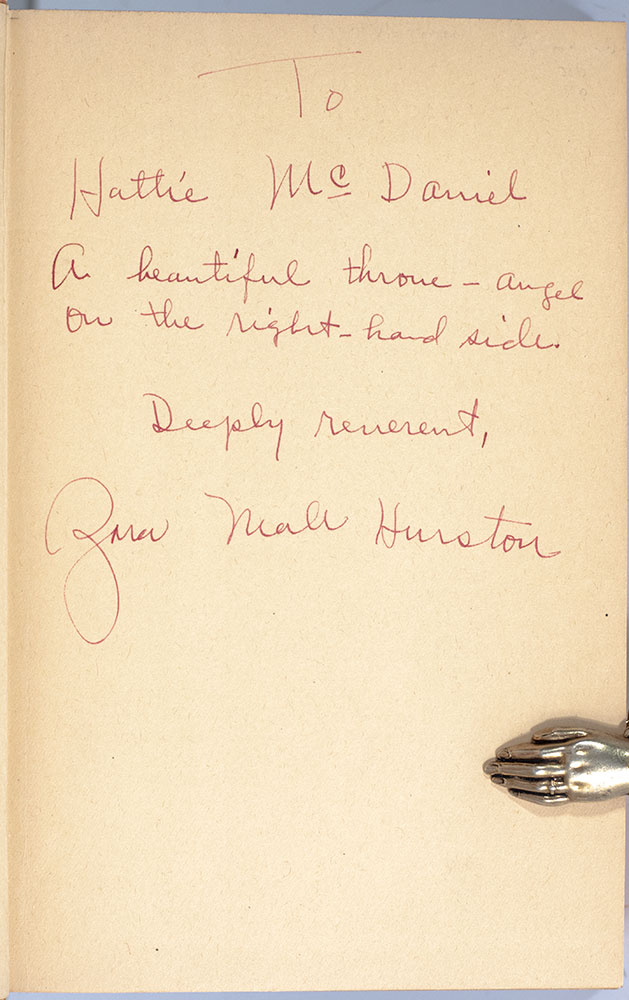 To
Hattie McDaniel
A beautiful throne - angel
on the right-hand side.
Deeply reverent,
Zora Neale Hurston